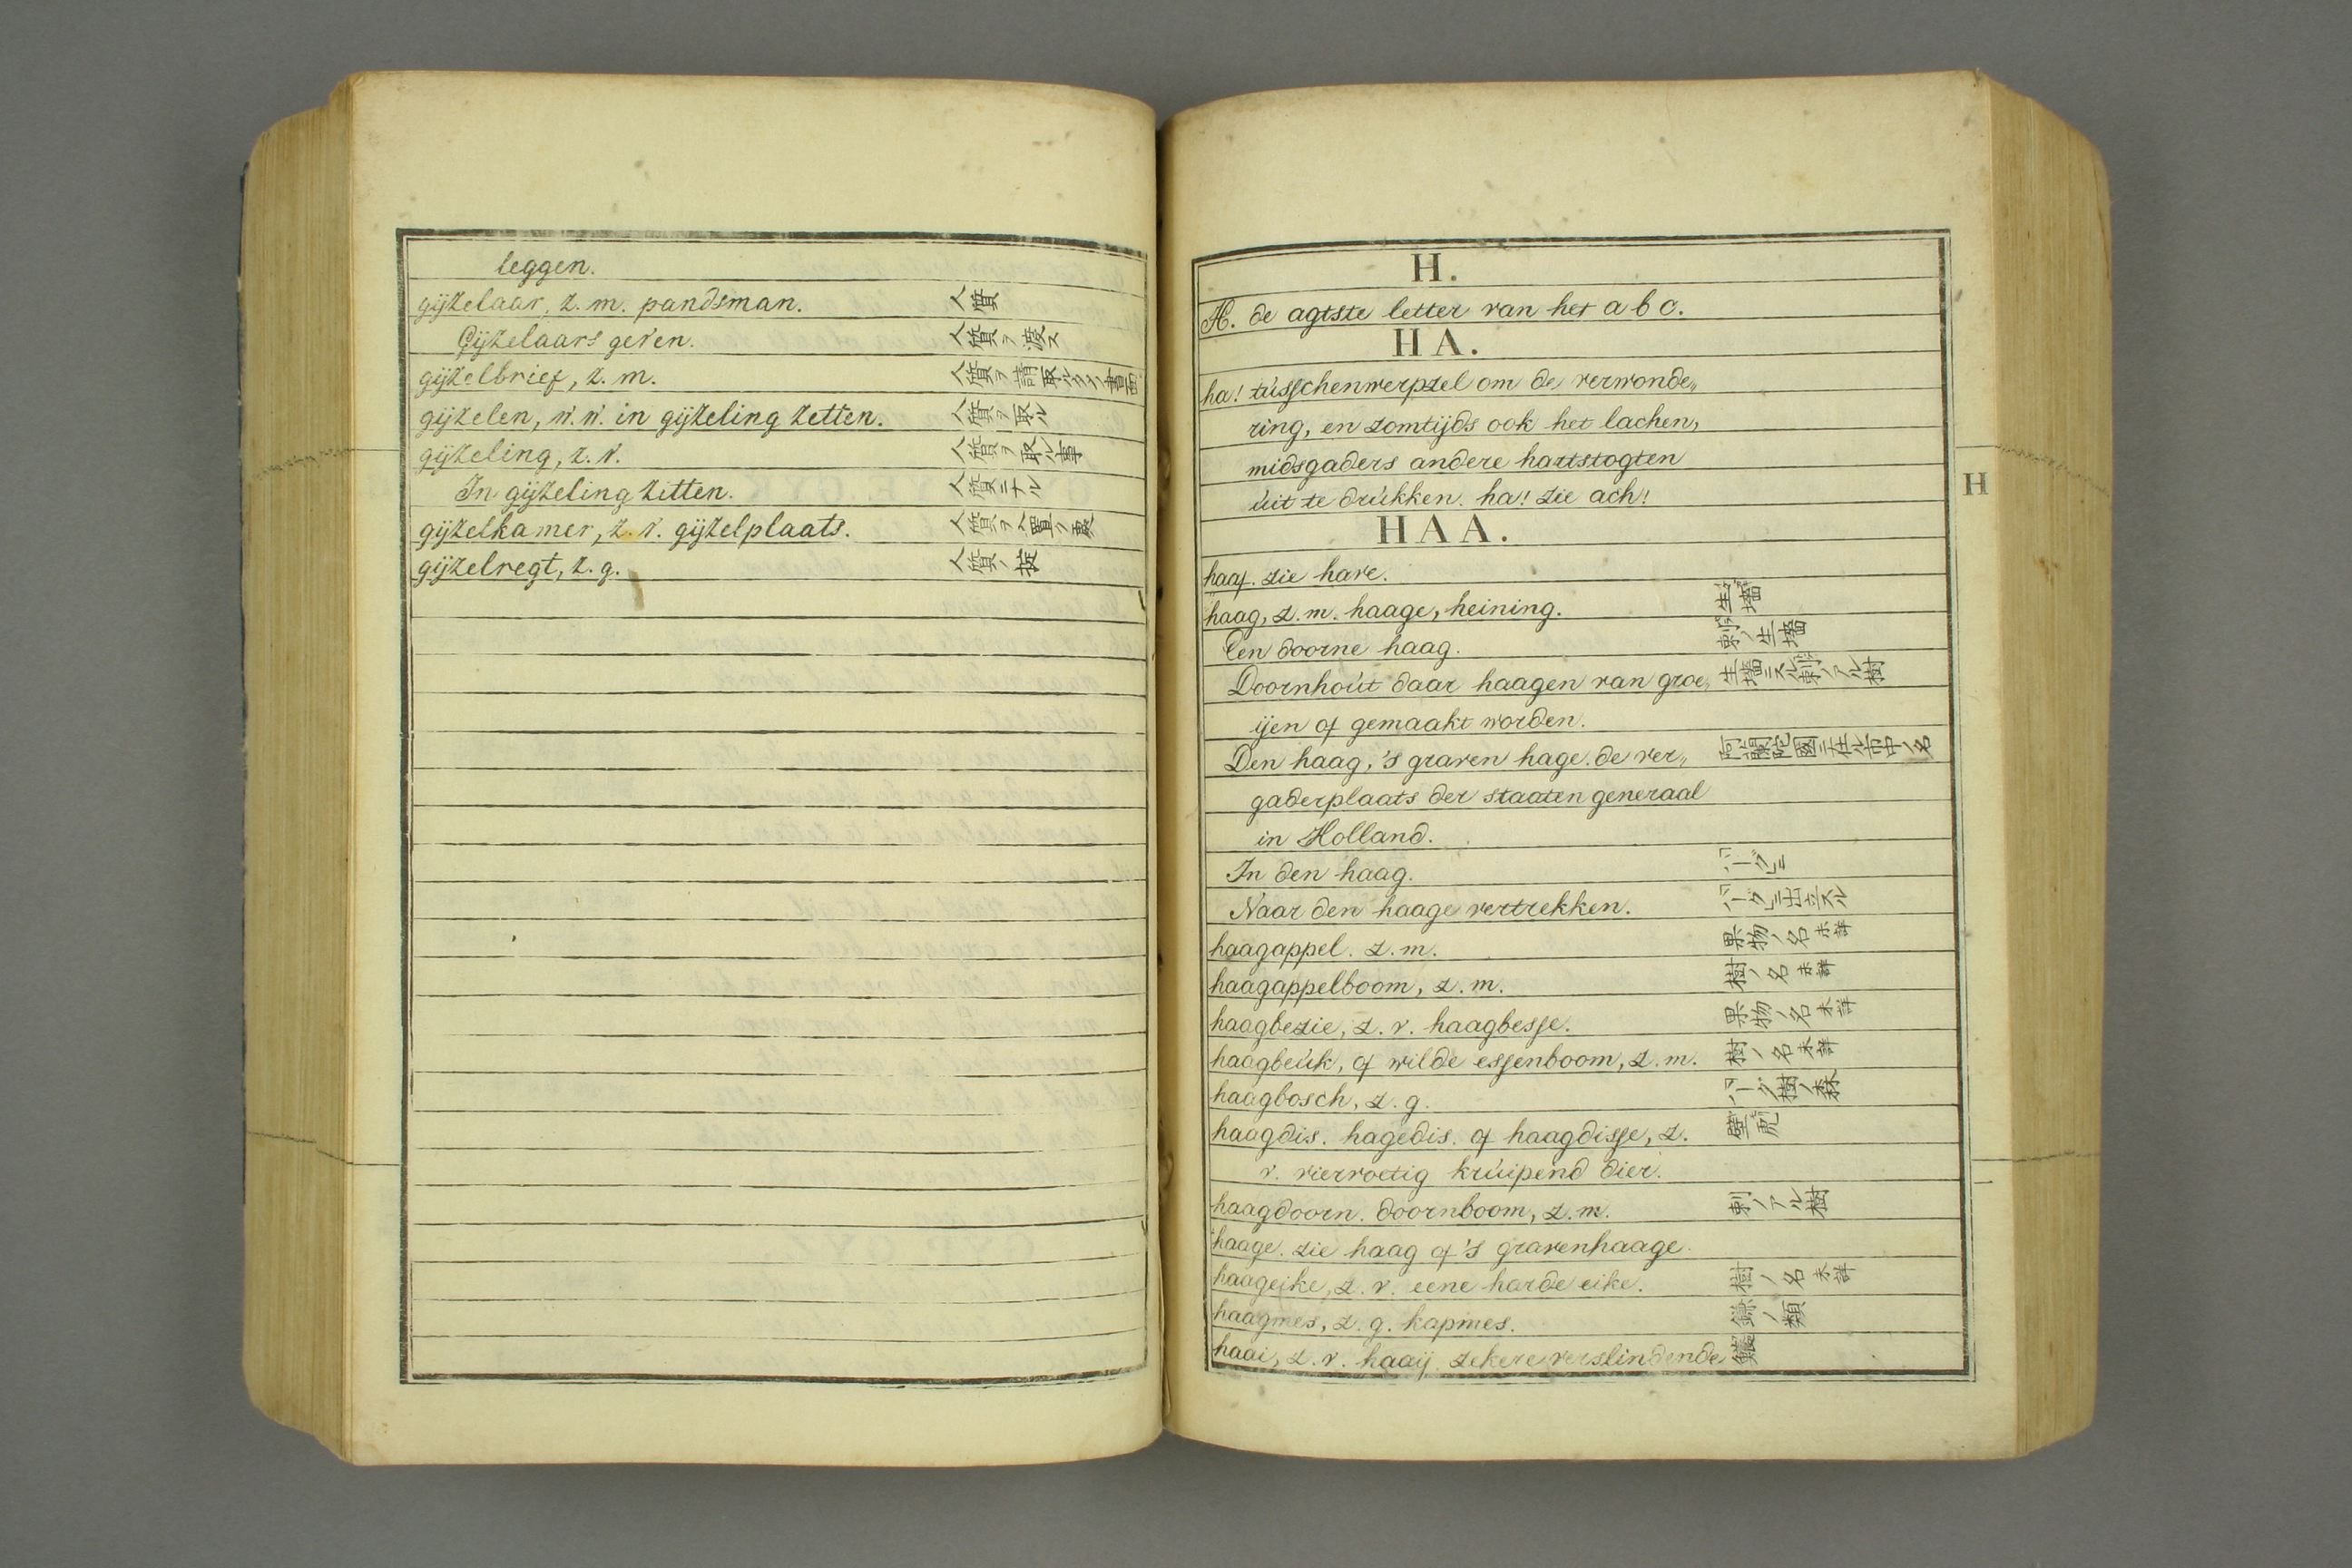 leggen.
gijzelaar, z. m. pandsman. 人質
Gijzelaars geven. 人質ヲ渡ス
gijzelbrief, z. m. 人質ヲ請取ル書面
gijzelen, w. w. in gijzeling zetten. 人質ヲ取ル
gijzeling, z. v. 人質ヲ取ル事
In gijzeling zitten. 人質ニナル
gijzelkamer, z. v. gijzelplaats. 人質ヲ入置ク裏
gijzelregt, z. g. 人質ノ掟
H.
H. de agtste letter van het a b c.
HA.
ha! tússchenwerpzel om de verwonde„
ring, en zomtijds ook het lachen,
midsgaders andere hartstogten
úit te drúkken. ha! zie ach!
H
HAA.
haaf. zie have.
haag, z. m. haage, heining. 生墻
Een doorne haag. 刺ノ生墻
Doornhoút daar haagen van groe„ 生墻ニスル刺ノアル樹
ijen of gemaakt worden.
Den haag, 's graven hage. de ver„ 阿蘭陀國ニ在ル市中ノ名
gaderplaats der staaten generaal
in Holland.
In den haag. 「ハーグ」ニ
Naar den haage vertrekken. 「ハーグ」ニ出立スル
haagappel. z. m. 果物ノ名 未詳
haagappelboom, z. m. 樹ノ名 未詳
haagbezie, z. v. haagbesse. 果物ノ名 未詳
haagbeúk, of wilde essenboom, z. m. 樹ノ名 未詳
haagbosch, z. g. 「ハーグ」樹ノ森
haagdis. hagedis. of haagdisse, z. 壁虎
v. viervoetig krúipend dier.
haagdoorn. doornboom, z. m. 刺ノアル樹
haage. zie haag of 's gravenhaage.
haageike, z. v. eene harde eike. 樹ノ名 未詳
haagmes, z. g. kapmes. 鎌ノ類
haai, z. v. haaij. zekere verslindende